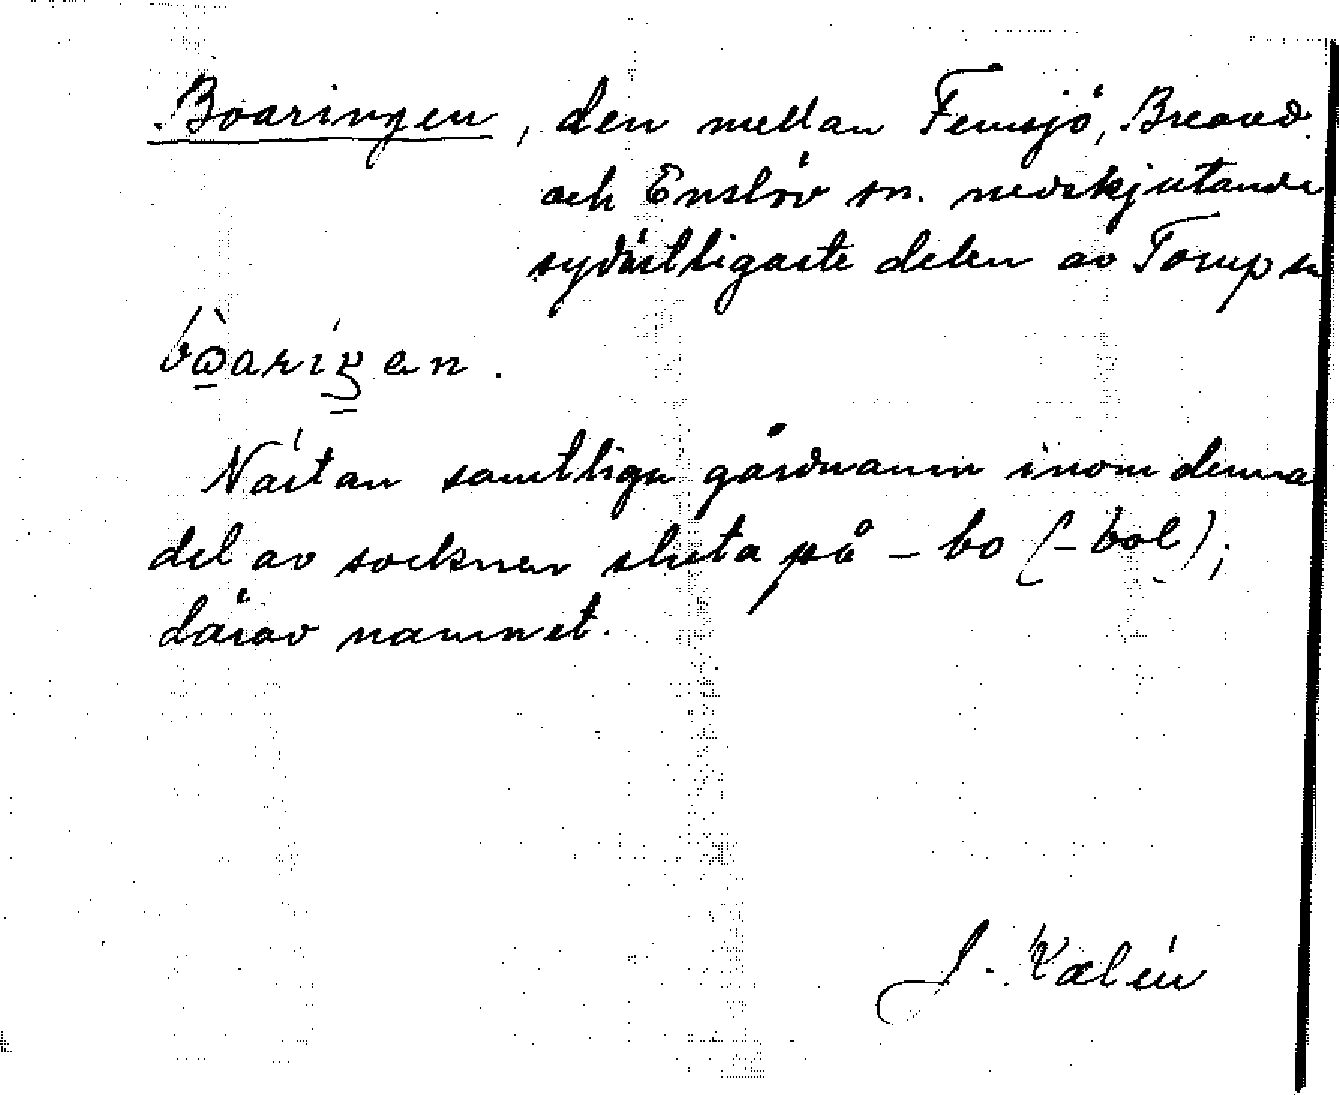 Boaringen, den mellan Femsjö, Breared
och Enslöv sn. nedskjutande
sydöstligaste delen av Torup sn
Nästan samtliga gårdnamn inom denna
del av socknen sluta på -bo (-bol);
därav namnet.
J. Kalén